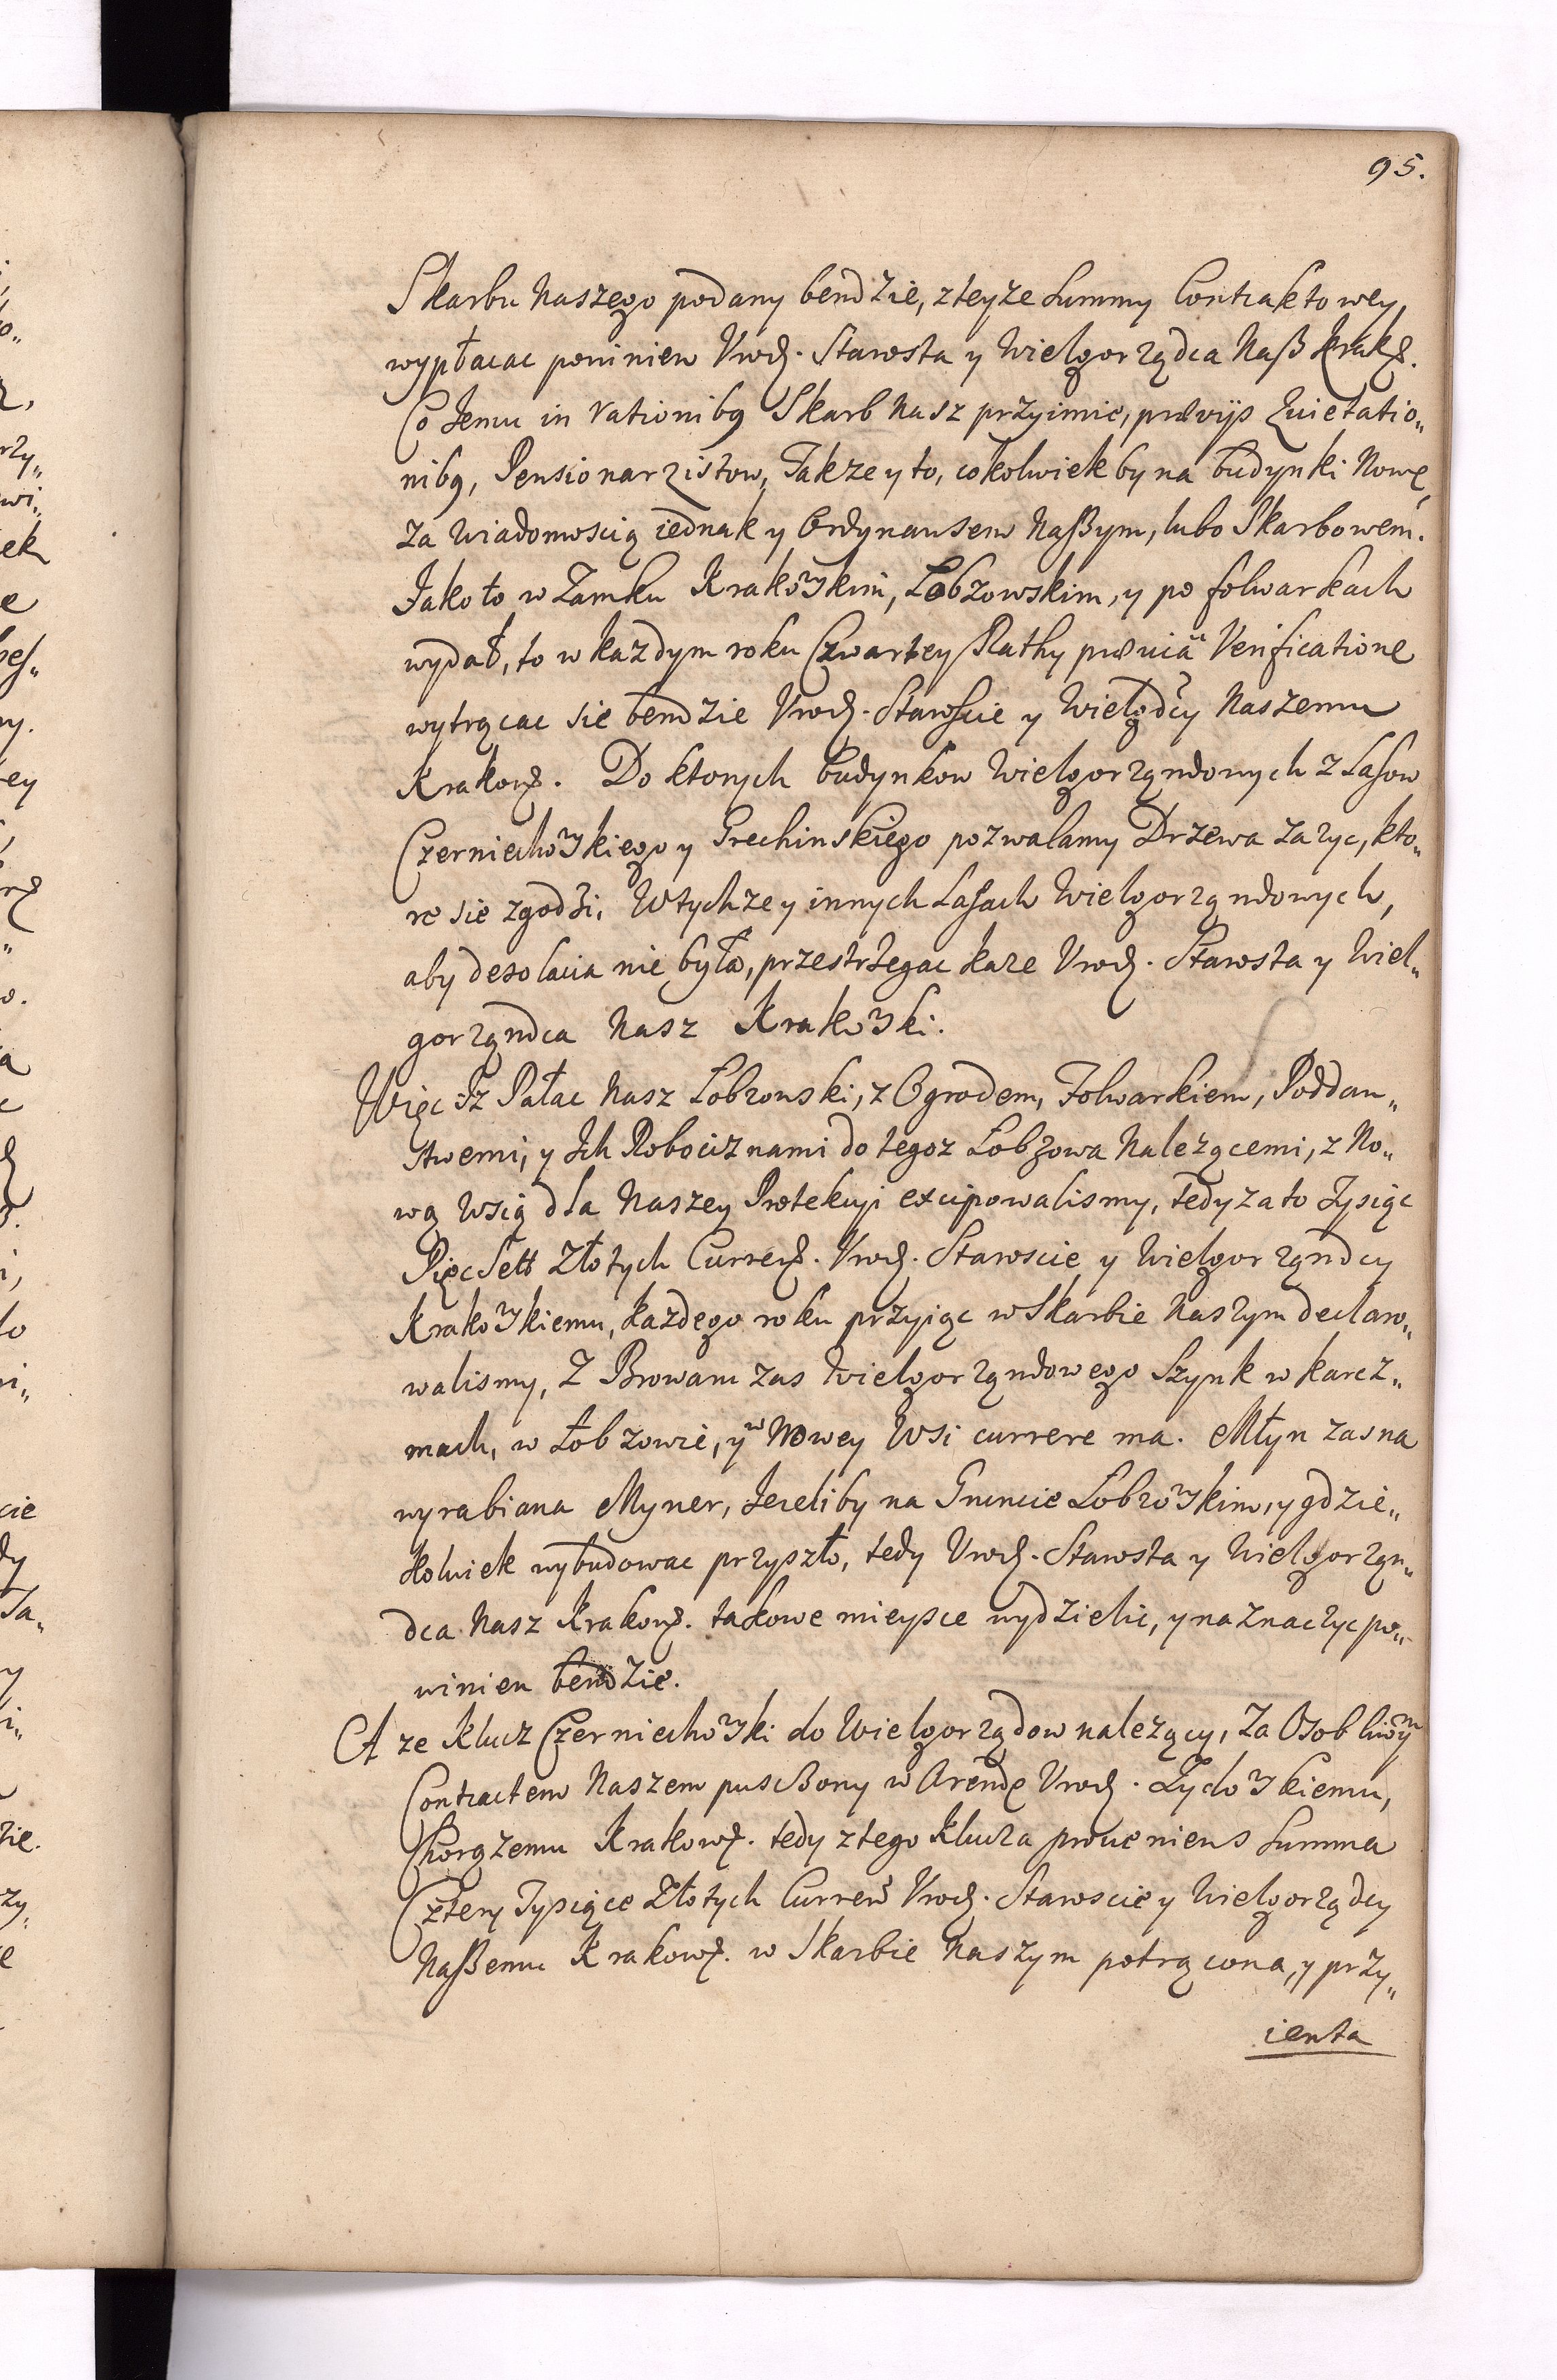 95.
Skarbu Naszego podany bendzie, z teyze Summy Contraktowey,
wypłacac powinien Vrod. Starosta y Wielgorządca Naß Krak.
Co Jemu in rationibq Skarb Nasz przyimie, prævijs Quietatio„
nibq, Pensionarzistow, Takze y to, cokolwiek by na budynki Nowe,
za wiadomoscią iednak y Ordynansem Naßym, lubo Skarbowem.
Jako to w Zamku Krakowskim, Lobzowskim, y po folwarkach
wydał, to w kazdym roku Czwartey Rathy prævia Verificatione
wytrącac sie bendzie Vrod. Staroscie y Wielgdcy Naszemu
Krakow. Do ktorych budynkow Wielgorządowych z Lasow
Czerniechowskiego y Grechinskiego pozwalamy Drzewa zazyc, kto„
re sie zgodzi. W tychze y innych Lasach Wielgorząndowych,
aby desolacia nie była, przestrzegac kaze Vrod. Starosta y Wiel„
gorząndca Nasz Krakowski.
Więc Iz Pałac Nasz Lobzowski, z Ogrodem, Folwarkiem, Poddan„
stwemi, y Ich Robociznami do tegoz Lobzowa Nalezącemi, z No„
wą Wsią dla Naszey Protekcyi excipowalismy, tedy za to Tysiąc
Pięc Sett Złotych Curren. Vrod. Staroscie y Wielgorząndcy
Krakowskiemu, kazdego roku przyiąc w Skarbie Naszym declaro„
walismy, Z Browaru zas Wielgorząndowego Szynk w karcz„
mach, w Łobzowie, y w Nowey Wsi currere ma. Młyn zas na
wyrabiana Myner, Jezeliby na Gruncie Lobzowskim, y gdzie„
kolwiek wybudowac przyszło, tedy Vrod. Starosta y Wielgorząn„
dca Nasz Krakow. takowe mieysce wydzielic, y naznaczyc po„
winien bendzie.
A ze Klucz Czerniechowski do Wielgorządow nalezący, za Osobliwym
Contractem Naszem puscßony w Arende Vrod. Zydowskiemu,
Chorązemu Krakow. tedy z tego Klucza proveniens Summa
Cztery Tysiące Złotych Curren Vrod. Staroscie y Wielgorządcy
Naßemu Krakow. w Skarbie Naszym potrącona, y przy„
ienta